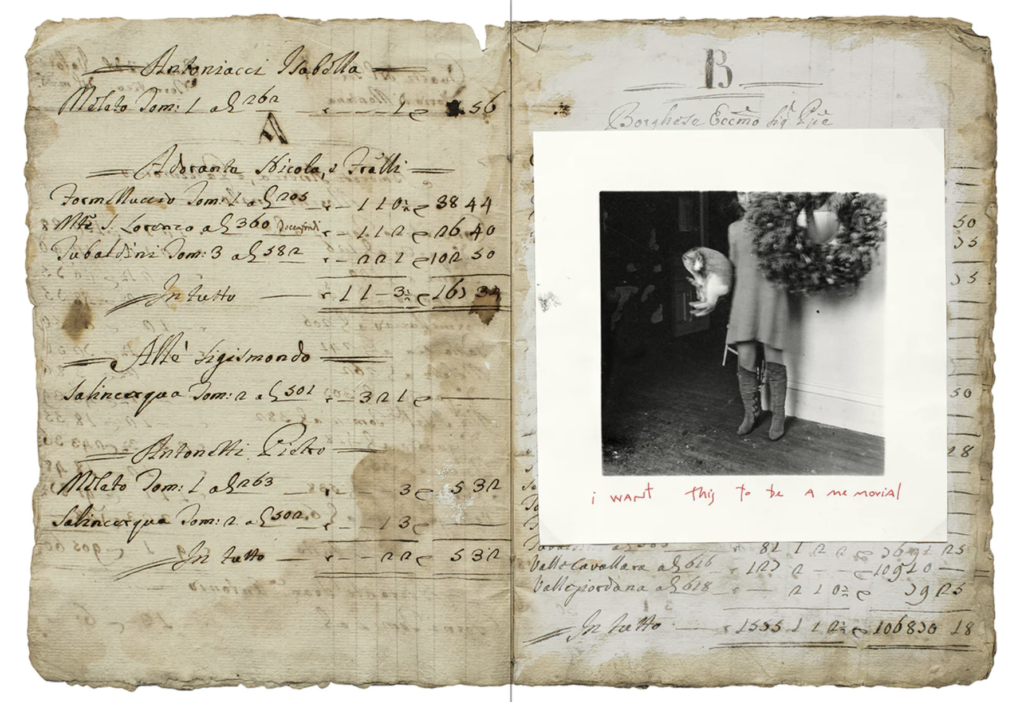 Antoniacci Isabella
Melato Tom: 1 a § 262 1 56
A
Adorante Nicola, e Fratlli
Formelluccio Tom: 1 a § 205 1 1 0 38 44
S. Lorenzo a § 360 1 1 2 26 40
Tubaldini Tom: 3 a § 582 2 2 1 102 50
In tutto 1 1 - 3
Allè Sigismondo
Salincerqua Tom: 2 a § 501 3 2 1
Antonetti Pietro
Melato Tom: 1 a § 263 3 5 32
Salincerqua Tom: 2 a § 502 1 3
In tutto 2 2 5 32
B
Borghese Eccmo Sig
50
35
35
50
28
i want this to be a memorial
Valle Cavallara a § 616 127 2 10910
Valle giordana a § 618 2 1 0 39 25
In tutto 1555 1 1 2 106830 18